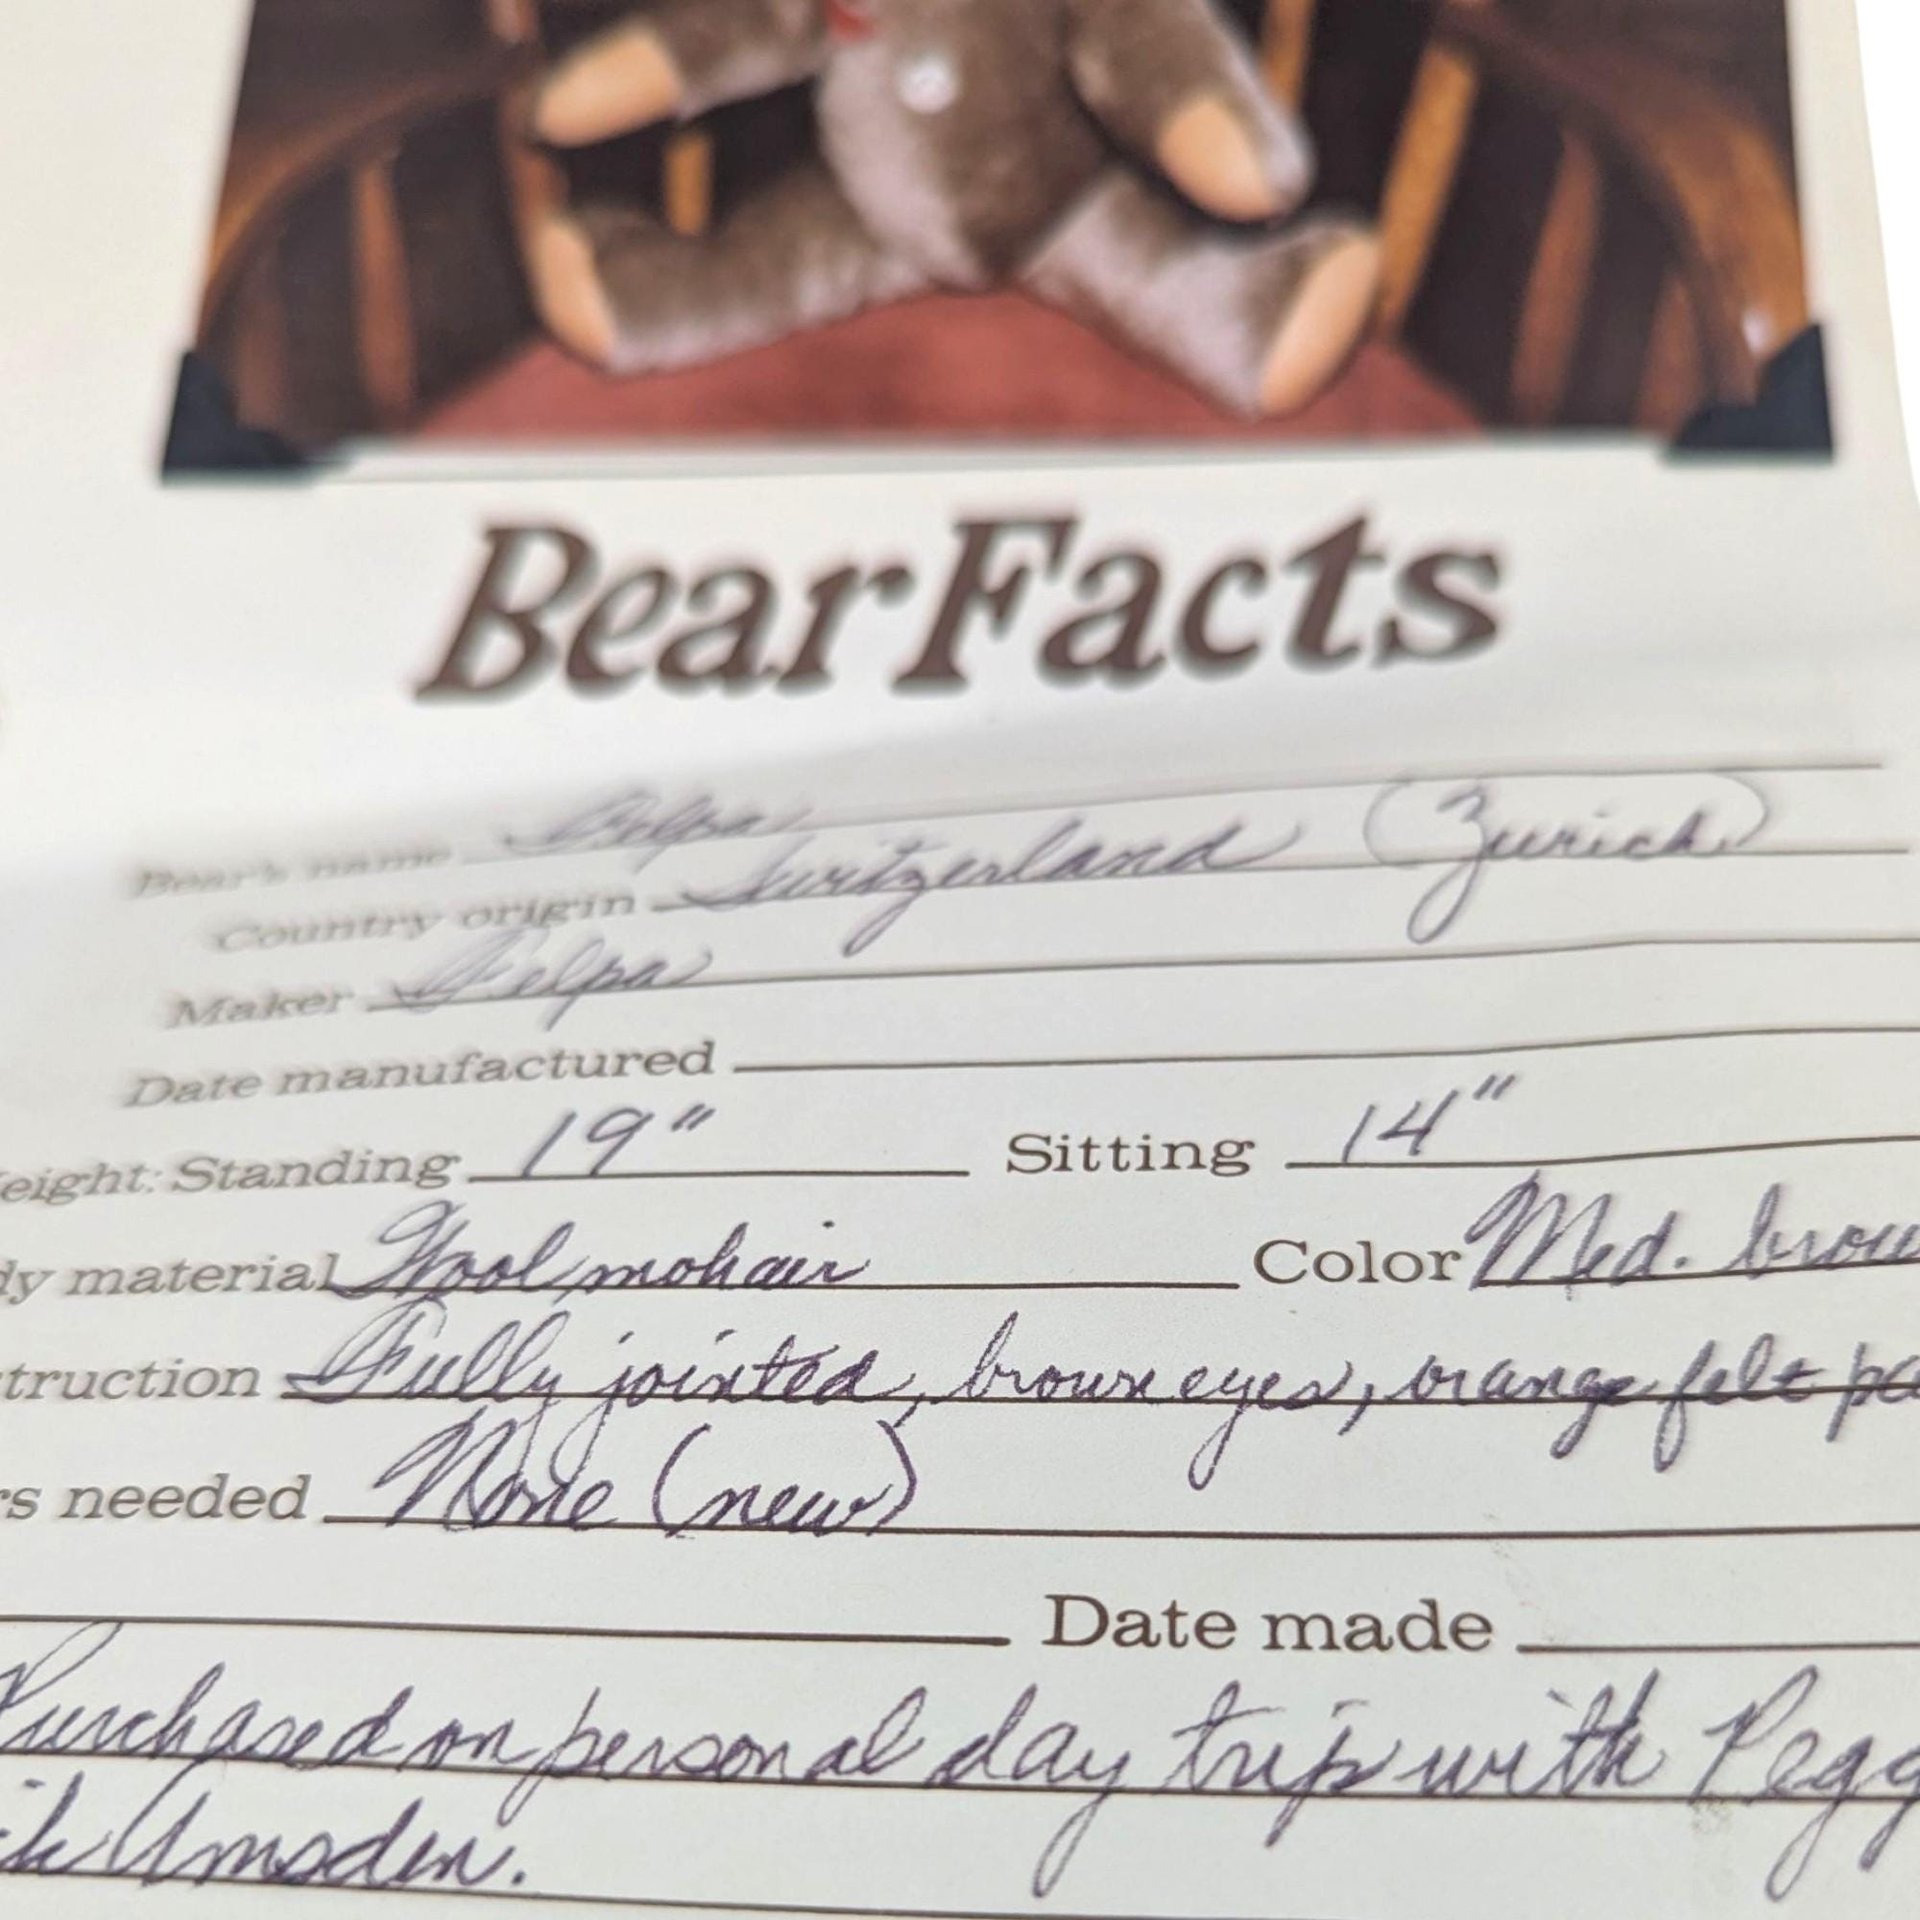 Bear Facts
Bear's name
Country origin Switzerland (Zurich)
Maker Felpa
Date manufactured
eight: Standing 19" Sitting 14"
dy material Wool mohair Color Med. brow
truction Fully jointed, brown eyes, orange felt pa
rs needed None (new)
Date made
Purchased on personal day trip with Pegg
ik Amsden.